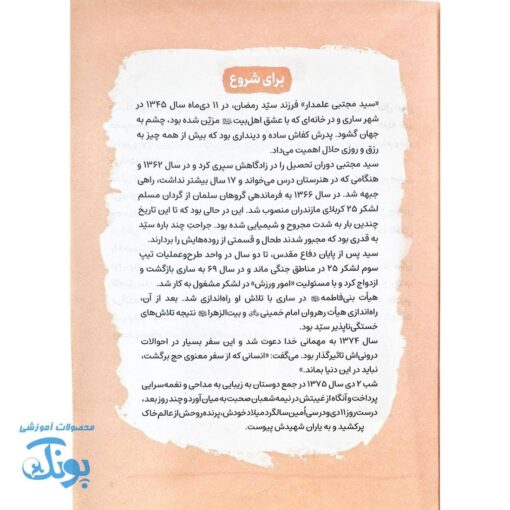 برای شروع
«سید مجتبی علمدار» فرزند سیّد رمضان، در ۱۱ دی‌ماه سال ۱۳۴۵ در
شهر ساری و در خانه‌ای که با عشق اهل‌بیت مزیّن شده بود، چشم به
جهان گشود. پدرش کفاش ساده و دینداری بود که بیش از همه چیز به
رزق و روزی حلال اهمیت می‌داد.
سید مجتبی دوران تحصیل را در زادگاهش سپری کرد و در سال ۱۳۶۲ و
هنگامی که در هنرستان درس می‌خواند و ۱۷ سال بیشتر نداشت، راهی
جبهه شد. در سال ۱۳۶۶ به فرماندهی گروهان سلمان از گردان مسلم
لشکر ۲۵ کربلای مازندران منصوب شد. این در حالی بود که تا این تاریخ
چندین بار به شدت مجروح و شیمیایی شده بود. جراحتِ چند باره سیّد
به قدری بود که مجبور شدند طحال و قسمتی از روده‌هایش را بردارند.
سید پس از پایان دفاع مقدس، تا دو سال در واحد طرح‌وعملیات تیپ
سوم لشکر ۲۵ در مناطق جنگی ماند و در سال ۶۹ به ساری بازگشت و
ازدواج کرد و با مسئولیت «امور ورزش» در لشکر مشغول به کار شد.
هیأت بنی‌فاطمه در ساری با تلاش او راه‌اندازی شد. بعد از آن،
راه‌اندازی هیأت رهروان امام خمینی و بیت‌الزهرا نتیجه تلاش‌های
خستگی‌ناپذیر سیّد بود.
سال ۱۳۷۴ به مهمانی خدا دعوت شد و این سفر بسیار در احوالات
درونی‌اش تاثیرگذار بود. می‌گفت: «انسانی که از سفر معنوی حج برگشت،
نباید در این دنیا بماند.»
شب ۲ دی سال ۱۳۷۵ در جمع دوستان به زیبایی به مداحی و نغمه‌سرایی
پرداخت و آنگاه از غیبتش در نیمه شعبان صحبت به میان آورد و چند روز بعد،
درست روز ۱۱ دی و در سی‌اُمین سالگرد میلاد خودش، پرنده روحش از عالم خاک
پرکشید و به یاران شهیدش پیوست.
محصولات آموزشی
پونک